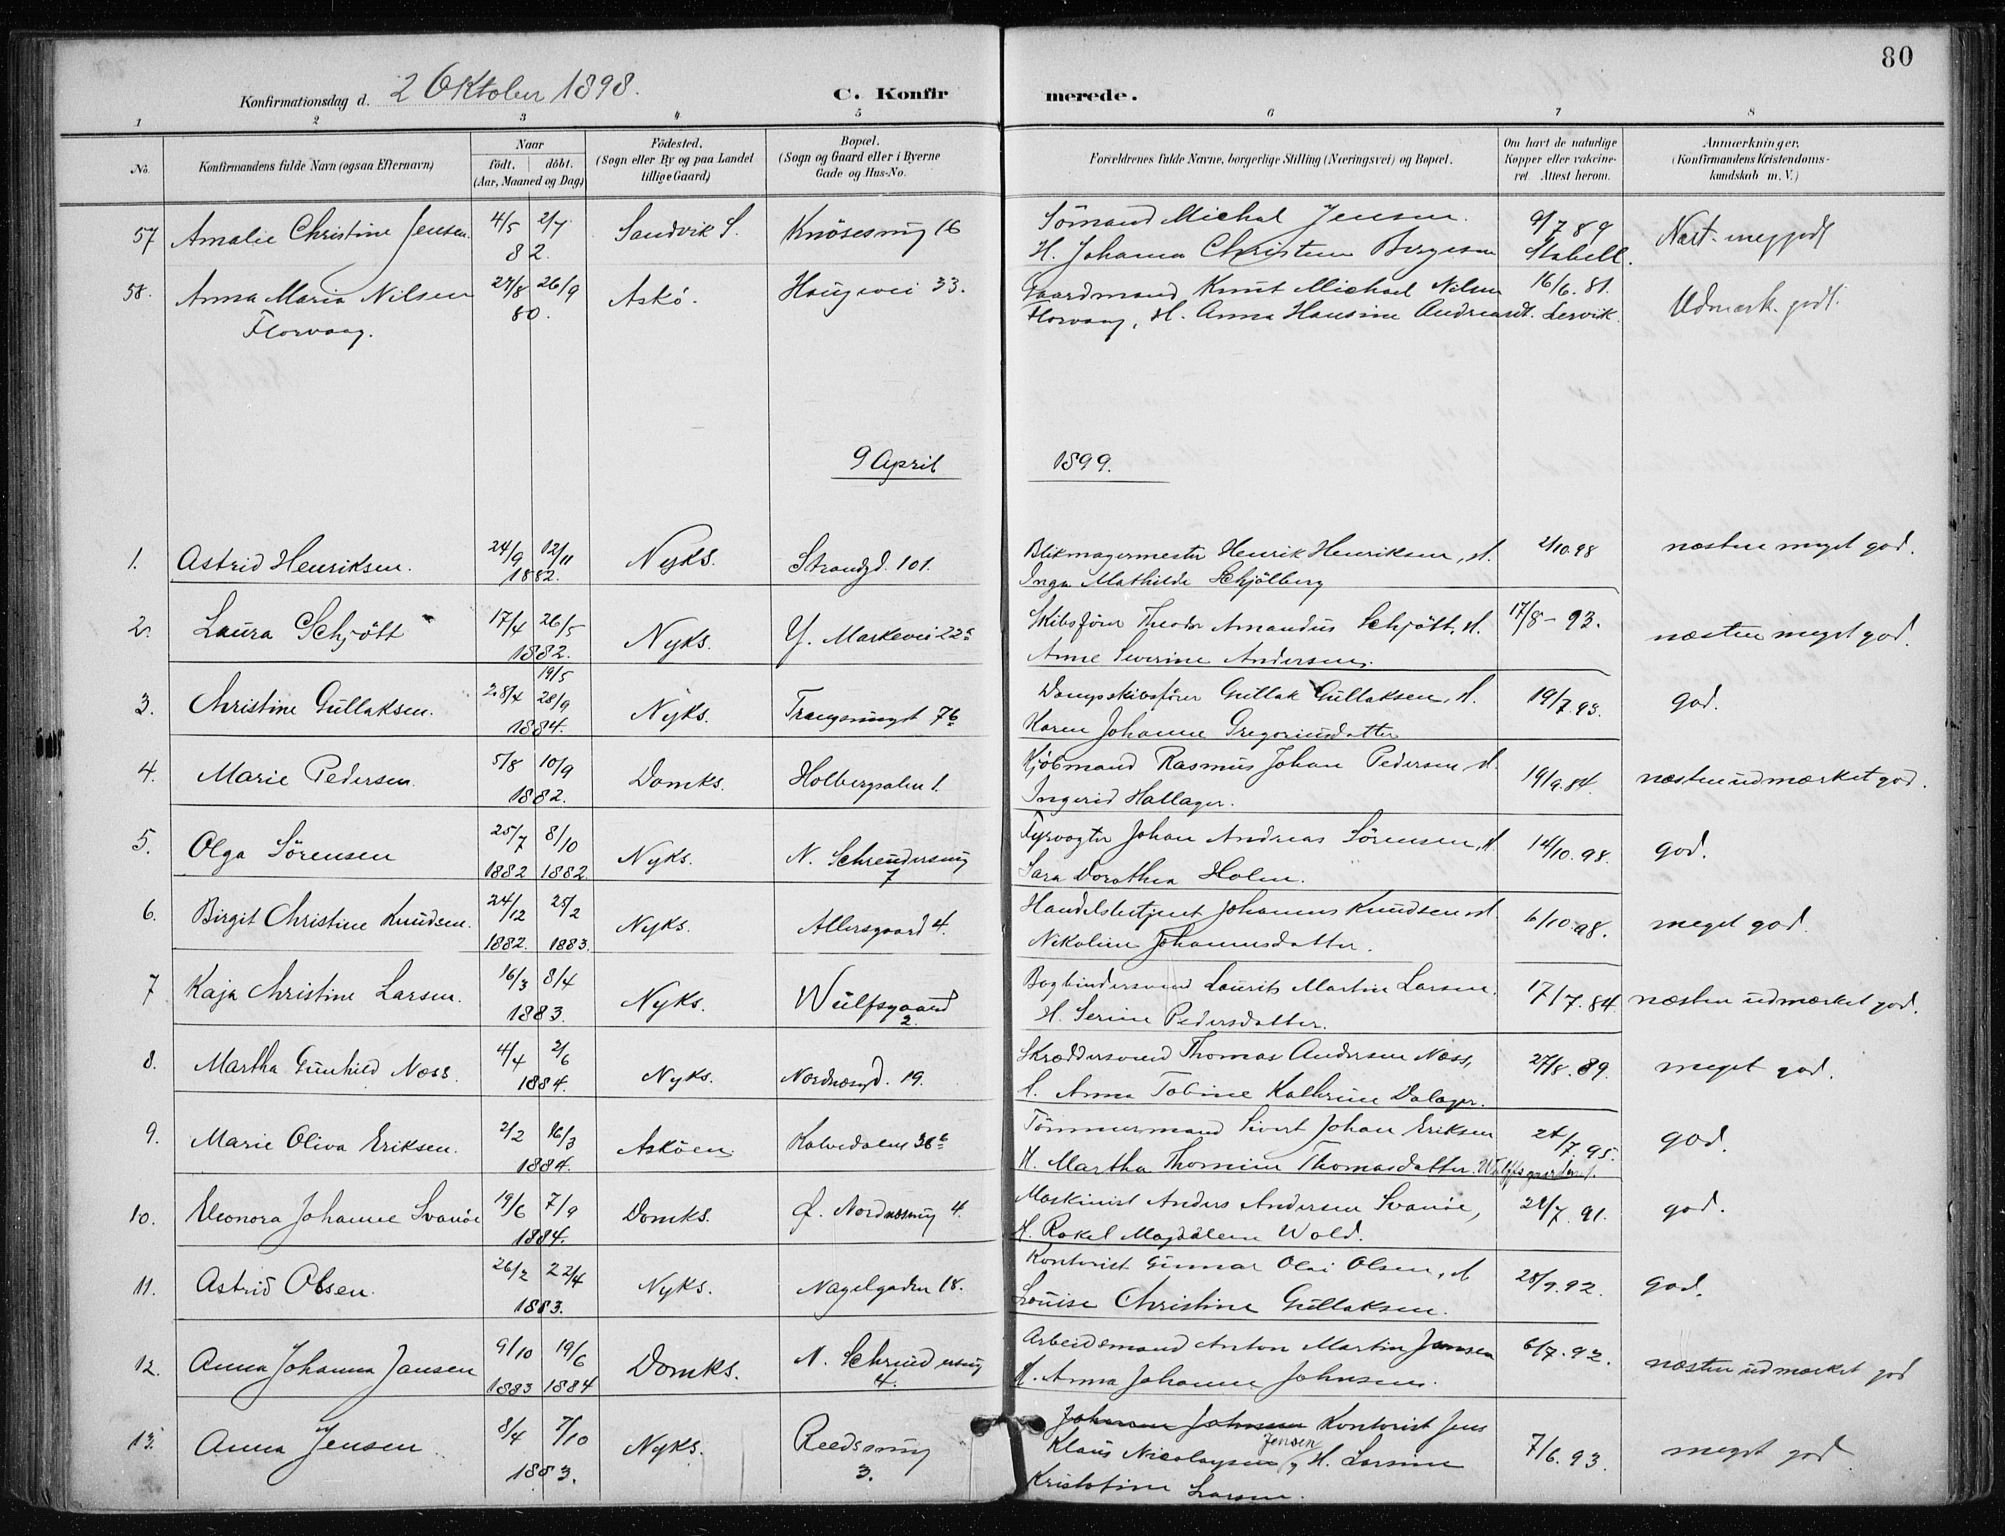 80
Konfirmationsdag d. 2 Oktober 1898. C. Konfirmerede.
1 2 3 4 5 6 7 8
No. Konfirmandens fulde Navn (ogsaa Efternavn) Naar födt. döbt. (Aar, Maaned og Dag) Födested. (Sogn eller By og paa Landet tillige Gaard) Bopæl. (Sogn og Gaard eller i Byerne Gade og Hus-No. Forældrenes fulde Navne, borgerlige Stilling (Næringsvei) og Bopæl. Om havt de naturlige Kopper eller vakcineret. Attest herom. Anmærkninger, (Konfirmandens Kristendomskundskab m. V.)
57 Amalie Christine Jensen. 4/5 2/7 82. Sandvik S. Knösesmug 16 Sömand Michal Jensen. 9/7 89
H. Johanna Christine Stabell.
58. Anna Maria Nilsen 27/8 26/9 80. Askö. Haugevei 33. Gaardmand Knut Michael Nilsen 16/6. 81. Udmærk. godt.
Florvaag. Florvaag, H. Anna Hansine Lervik.
9 April 1899.
1. Astrid Henriksen. 24/9 12/11 1882. Nyks. Strandgd. 101. Blikmagermester Henrik Henriksen, H. 2/10.98 næsten meget god.
Inga Mathilde Schjölberg
2. Laura Schjött 17/4 26/5 1882. Nyks. Y. Markevei 22c Skibsförer Theodor Amandus Schjött, H. 17/8-93. næsten meget god.
Anne Severine Andersen.
3. Christine Gullaksen. 28/4 19/5 28/9 1884. Nyks. Trangesmuget 7b Dampskibsförer Gullak Gullaksen, H. 19/7.93. god.
Karen Johanne Gregoriusdatter
4. Marie Pedersen. 5/8 10/9 1882. Domks. Holbergsalm. 1. Kjöbmand Rasmus Johan Pedersen H. 19/9.84. næsten udmærket god.
Ingerid Hallager.
5. Olga Sörensen 25/7 1882 8/10 1882 Nyks. N. Schreudersmug 7 Fyrvogter Johan Andreas Sörensen, H 14/10.98. god.
Sara Dorothea Holm.
6. Birgit Christine Knudsen. 24/12 1882. 25/2 1883. Nyks. Allersgaard 4. Handelsbetjent Johannes Knudsen H 6/10.98. meget god.
Nikoline Johannesdatter.
7 Kaja Christine Larsen. 16/3 8/4 1883. Nyks. Wulfsgaard 2. Bogbindersvend Laurits Martin Larsen. 17/7.84. næsten udmærket god.
H. Serine Pedersdatter.
8. Martha Gunhild Næss. 4/4 2/6 1884. Nyks. Nordnæsgd. 19. Skræddersvend Thomas Andersen Næss, 27/8.89. meget god.
H. Anna Tobine Kathrine Dalager.
9. Marie Oliva Eriksen. 2/2 16/3 1884. Asköen. Kalvedalen 36b Tömmermand Sivert Johan Eriksen 24/7.95. god.
H. Martha Thomine Thomasdatter.
10. Eleonora Johanne Svanöe 19/6 7/9 1884. Domks. Ö. Nordnæsmug 4. Maskinist Anders Andersen Svanöe, 21/7.91. god.
H. Rakel Magdalene Wold.
11. Astrid Olsen. 26/2 22/4 1883. Nyks. Nagelgaden 18. Kontorist Gunnar Olai Olsen, H 28/9.92. god.
Louise Christine Gullaksen.
12. Anna Johanna Jansen 9/10 1883 19/6 1884 Domks. N. Schreudersmug 4. Arbeidsmand Anton Martin Jansen 6/7.92. næsten udmærket god
H. Anna Johanne Johnsen.
13. Anna Jensen 8/4 7/10 1883. Nyks. Reedsmug 3. Johanne Johnsen Kontorist Jens 7/6.93. meget god.
Klaus Nicolaysen Jensen, H. Larsine
Kristofine Larsen.